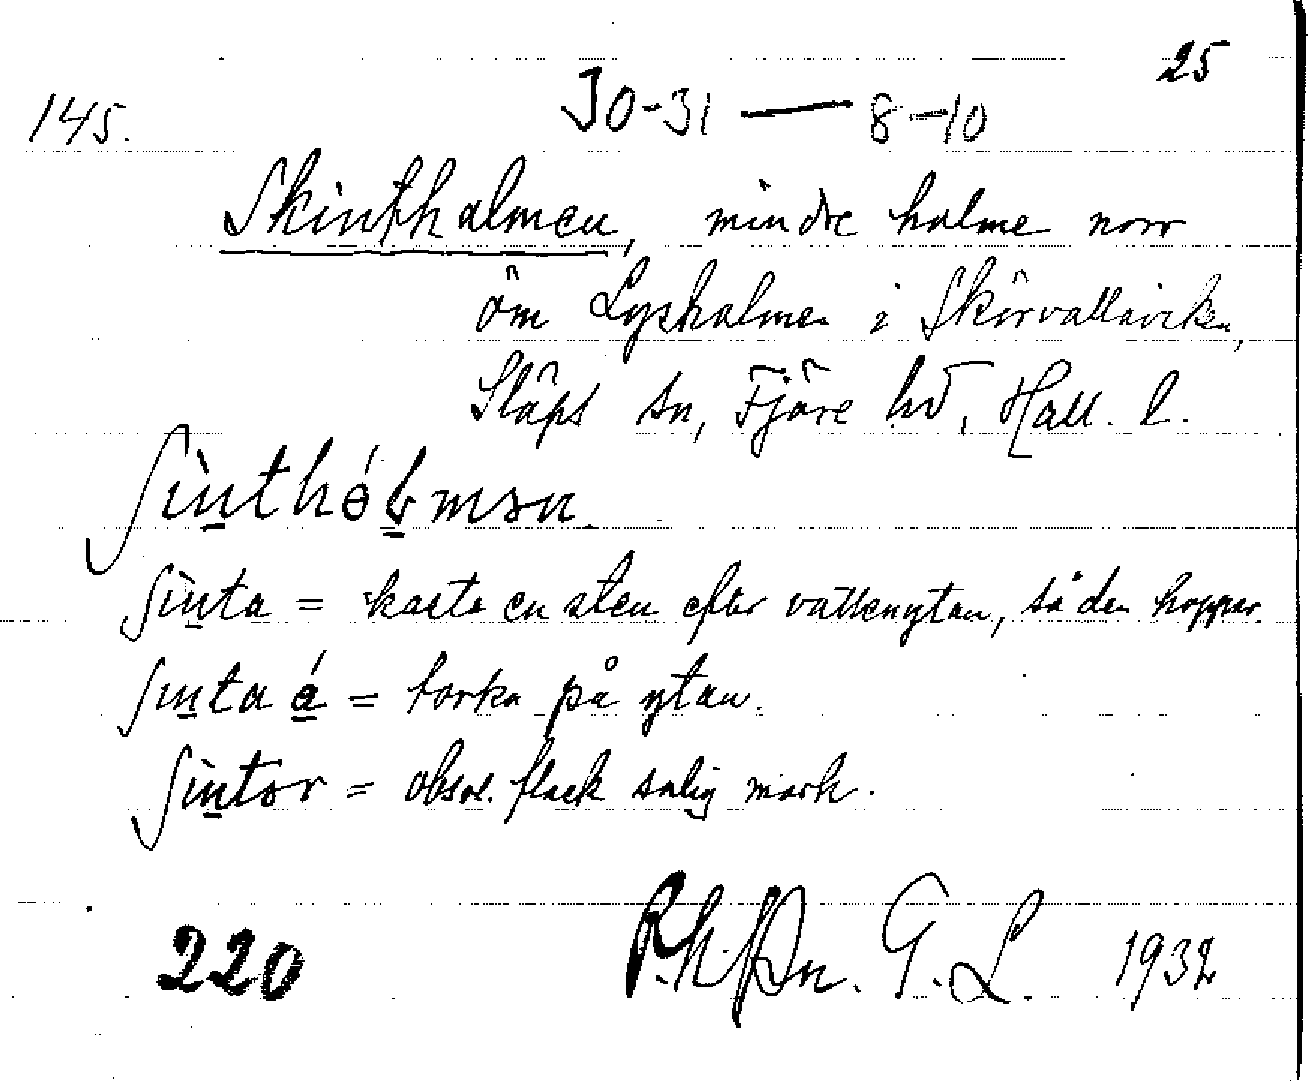 25
145. 30-31 — 8-10
Skintholmen, mindre holme norr
om Lysholmen i Skörvallaviken,
Släps sn, Fjäre hd, Hall. l.
ʃìn̲thól̲mən.
ʃìn̲ta = kasta en sten efter vattenytan, så den hoppar.
ʃin̲ta á̲ = torka på ytan.
ʃìn̲tər = obsol. flack salig mark.
220 G. L. 1932